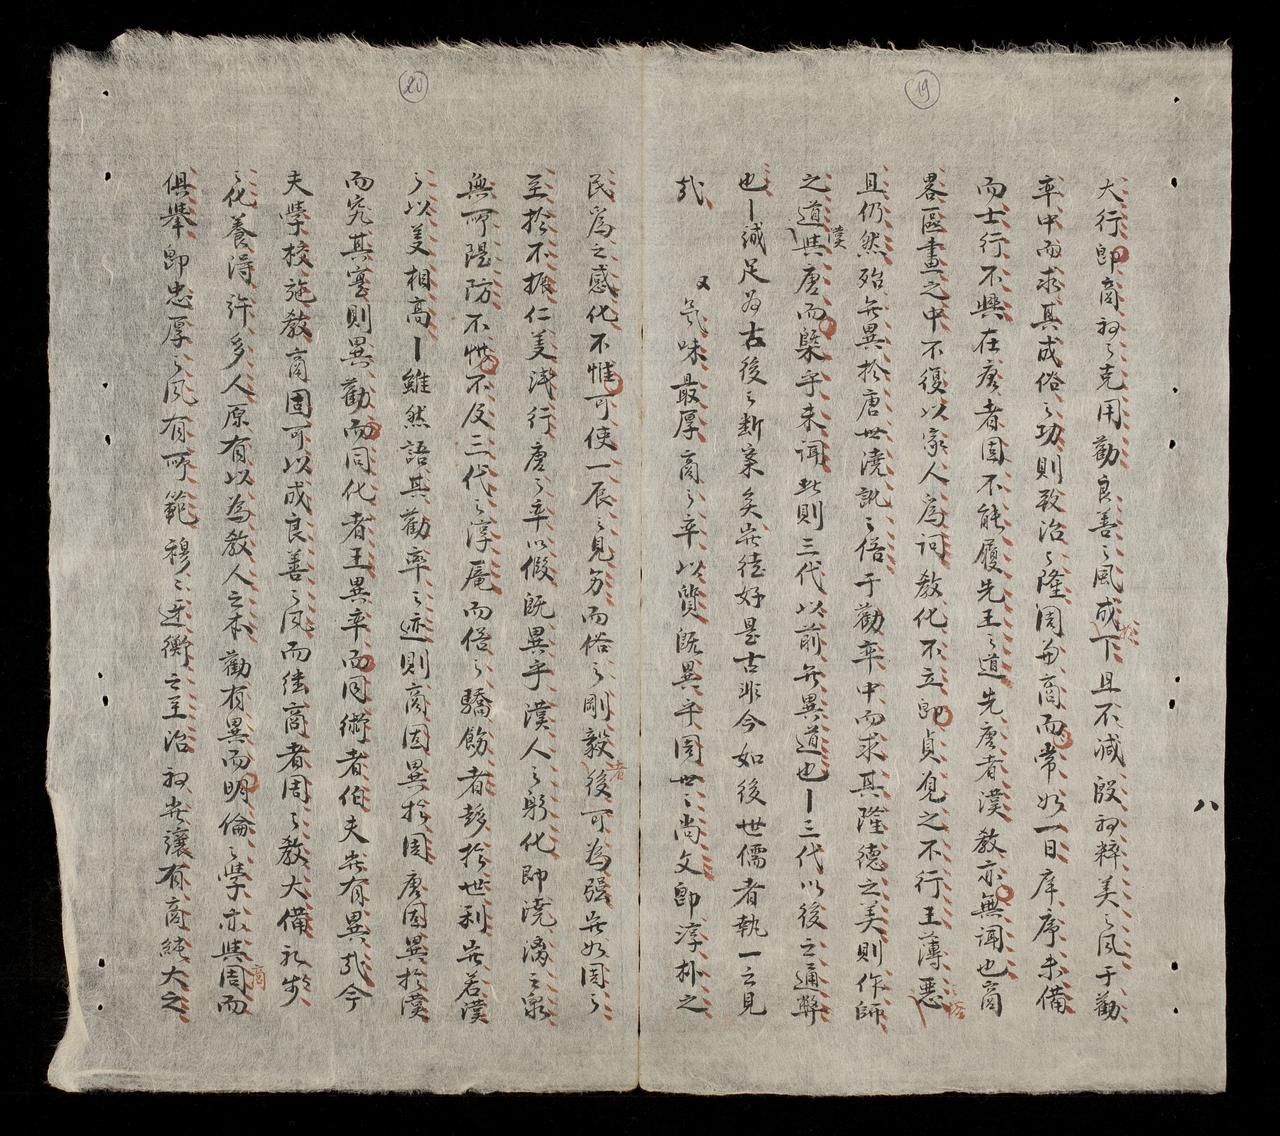 19
大行即商初之克用勸良善之風成於下且不減殷初粹美之风于勸
率中而求其成俗之功則致治之隆周每商而常如一日庠序未備
而士行不興在唐者固不能履先王之道先唐者漢教亦無闻也商
畧區畫之中不復以家人為词教化不立即貞観之不行王薄惡之俗
且仍然殆无異於唐世澆訛之俗于勸率中而求其隆德之美則作師
之道漢其唐而槩乎未闻此則三代以前无異道也三代以後之通弊
也誠足為古後之断案矣无徒好是古非今如後世儒者執一之見
哉 又氣味最厚商之率以質既異乎周世之尚文即淳朴之
八
20
民為之感化不惟可使一辰之見効而俗之剛毅者後可為强无如周之
至於不振仁美浅行唐之率以假既異乎漢人之躬化即澆漓之衆
無所隄防不惟不及三代之淳厖而俗之驕餙者趍於世利无若漢
之以美相高雖然語其勸率之迹則商固異於周唐固異於漢
而究其寔則異勸而同化者王異率而同術者伯夫豈有異哉今
夫學校施教商固可以成良善之风而继商者周之教大備礼於
之化養得許多人原有以為教人之本勸有異而明倫之學亦與周而商
俱舉即忠厚之风有所範穆之迓衡之至治初无讓有商純大之